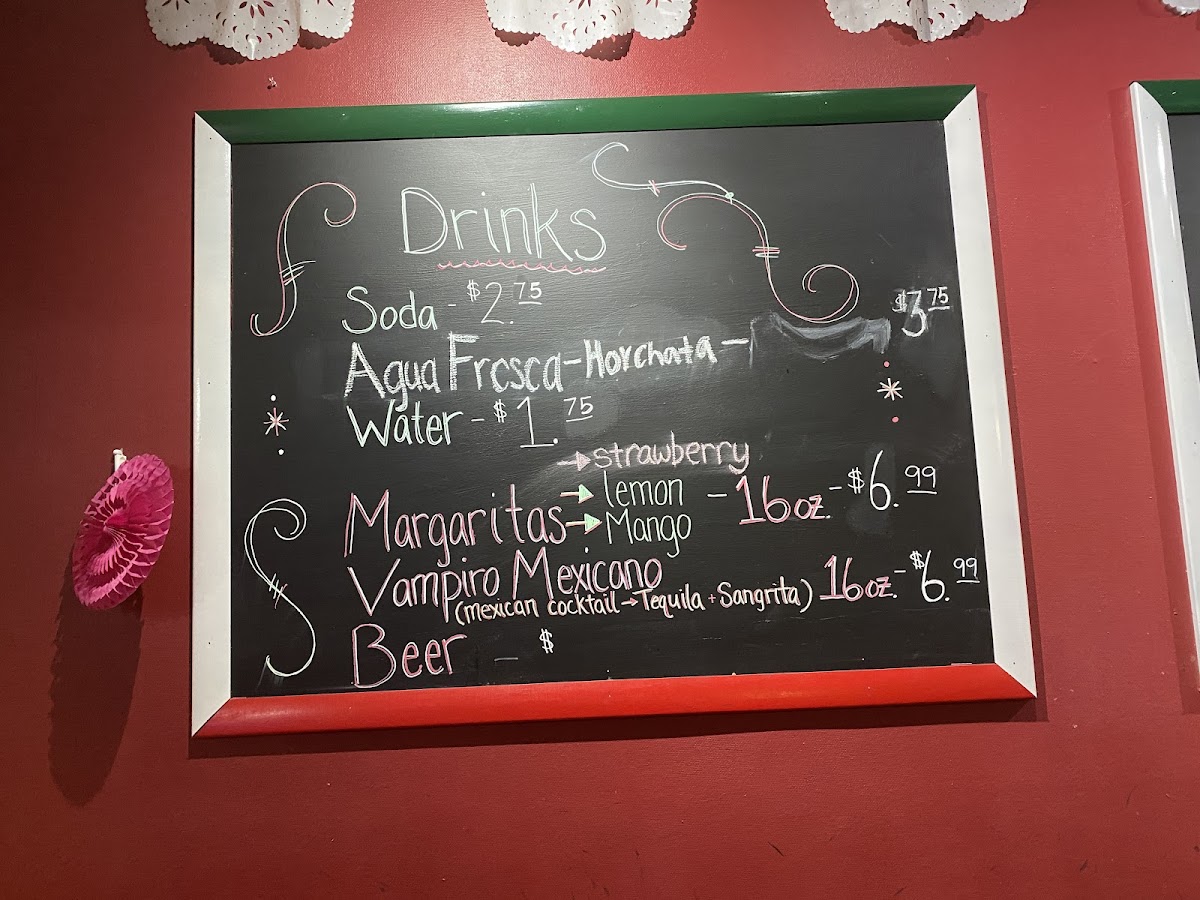 Drinks
Soda - $2.75
Agua Fresca - Horchata - $3.75
Water - $1.75
→ strawberry
→ lemon
Margaritas → Mango - 16oz. - $6.99
Vampiro Mexicano 16oz. - $6.99
(mexican cocktail → Tequila + Sangrita)
Beer - $